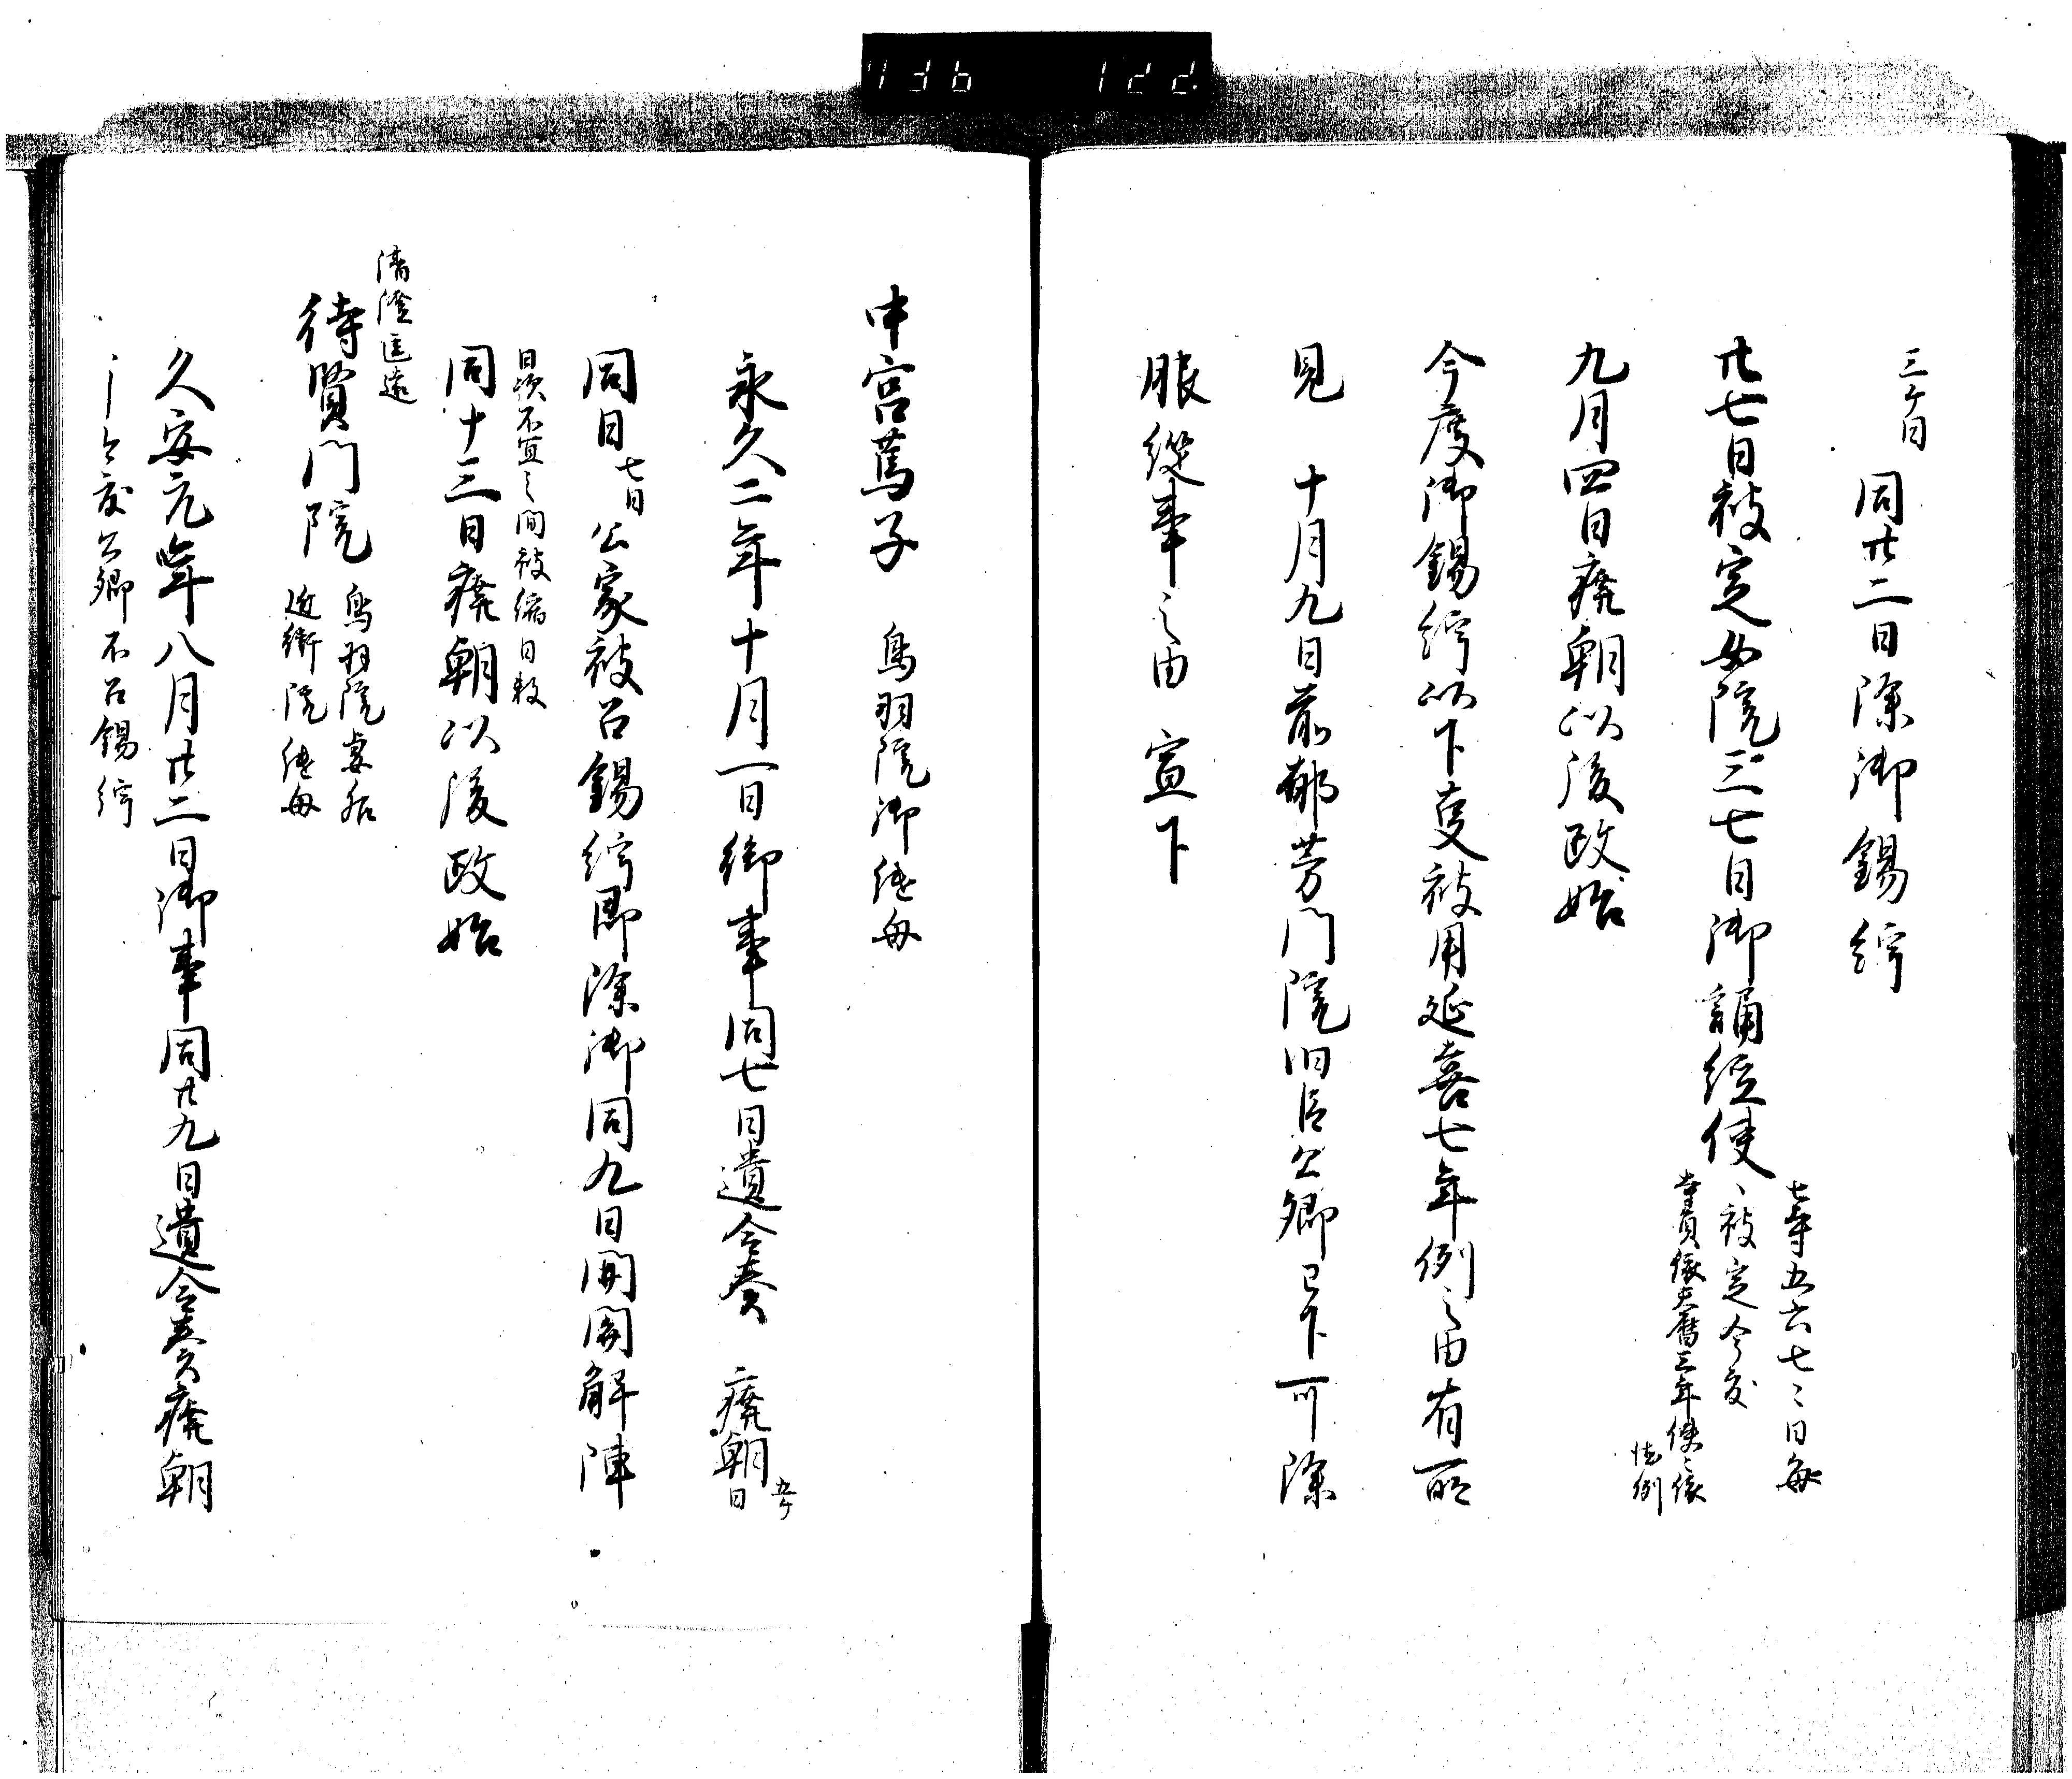 三ケ日
同廿二日除御錫紵
廿七日被定女院三七日御誦経使
七寺五六七々日毎
々被定今度
寺員依天暦三年使々依
例
九月四日廃朝以後政始
今度御錫紵以下隻被用延喜七年例之由有所
見　十月九日前郁芳門院旧臣公卿已下可除
服従事之由　宣下
中宮篤子　鳥羽院御継母
永久二年十月一日御事同七日遺令奏　廃朝五ケ日
同日七日公家被召錫紵即除御同九日開関解陣
日次不宜之間被縮日数
同十三日廃朝以後政始
清澄匡遠
待賢門院
鳥羽院妻后
近衛院継母
久安元年八月廿二日御事同廿九日遺令奏廃朝
今度公卿不召錫紵